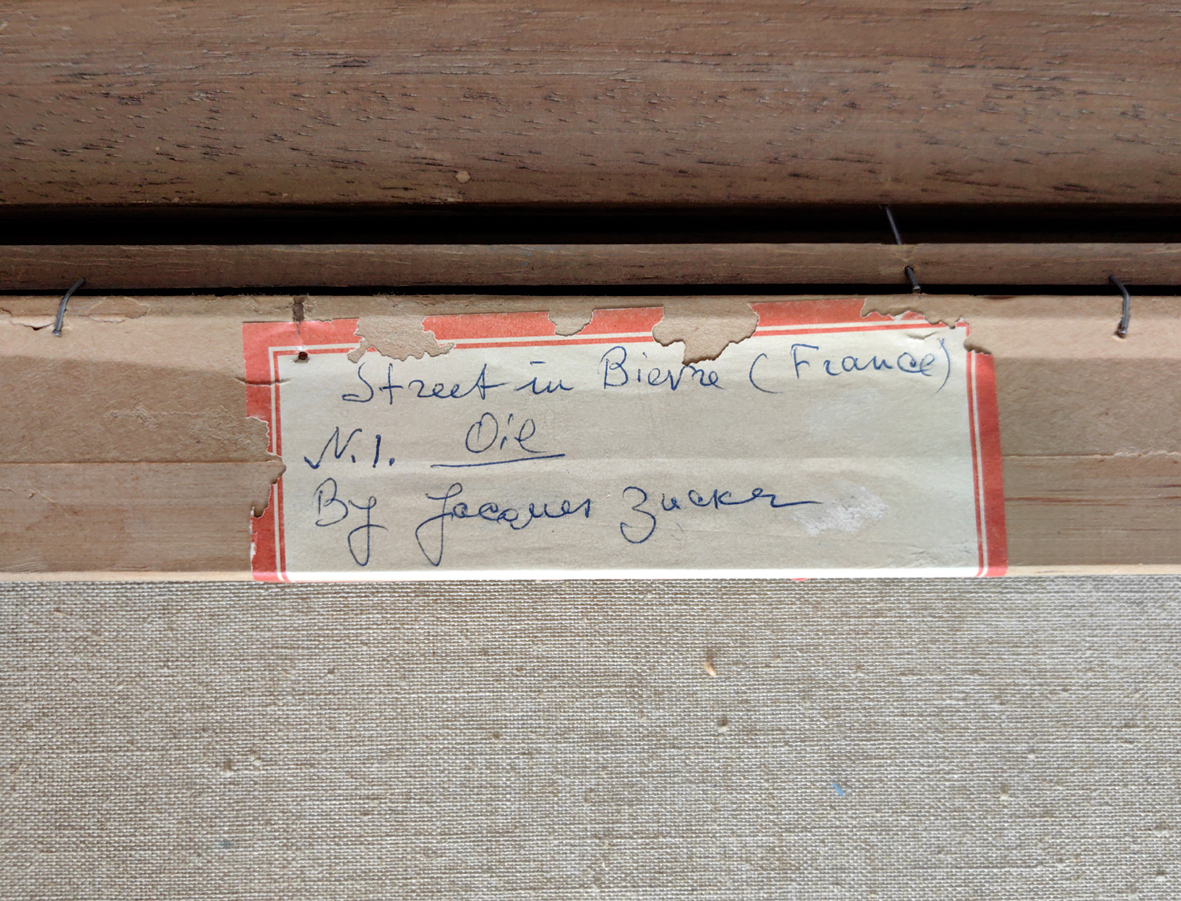 Street in Bievre (France)
N.1. Oil
By Jacques Zucker